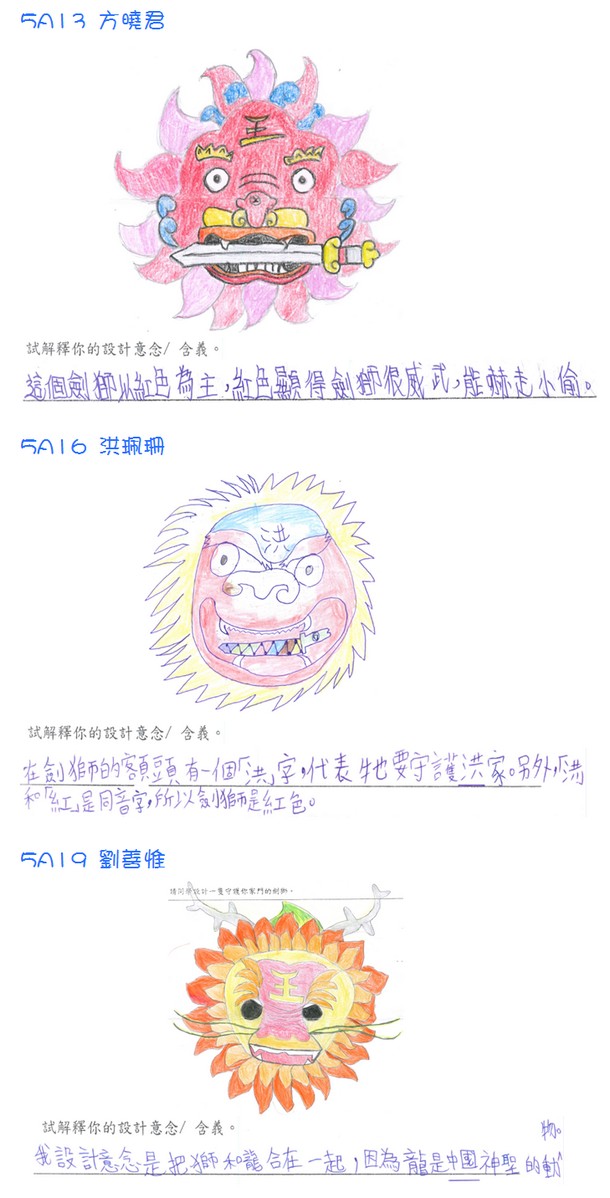 5A13 方曉君
王
試解釋你的設計意念/ 含義。
這個劍獅以紅色為主,紅色顯得劍獅很威武,能嚇走小偷。
5A16 洪珮珊
洪
試解釋你的設計意念/ 含義。
在劍獅的額頭有一個「洪」字,代表牠要守護洪家。另外,「洪
和「紅」是同音字,所以劍獅是紅色。
5A19 劉善惟
請同學設計一隻守護你家門的劍獅。
王
試解釋你的設計意念/ 含義。
物。
我設計意念是把獅和龍合在一起,因為龍是中國神聖的動